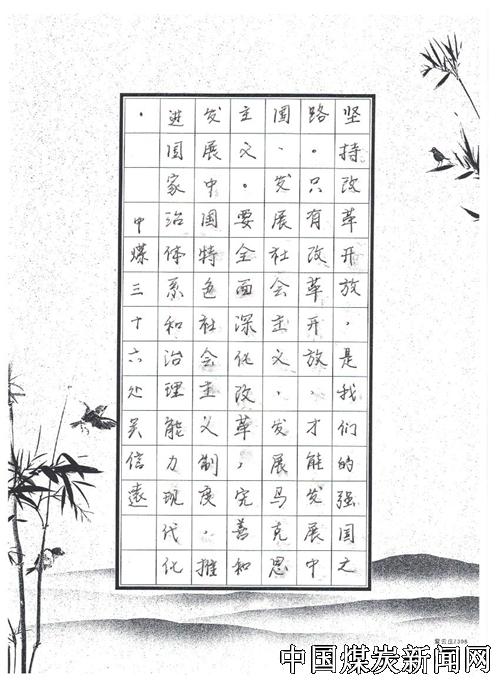 坚持改革开放，是我们的强国之
路。只有改革开放，才能发展中
国、发展社会主义、发展马克思
主义。要全面深化改革，完善和
发展中国特色社会主义制度，推
进国家治体系和治理能力现代化
。中煤三十六处吴信遠
中国煤炭新闻网